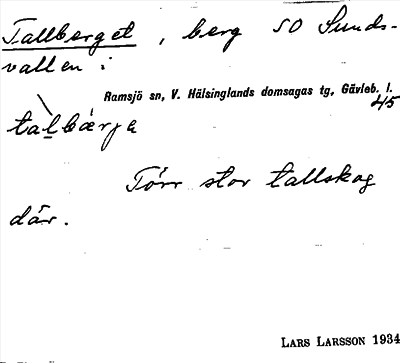 Tallberget, berg SO Sunds-
vallen i
Ramsjö sn, V. Hälsinglands domsagas tg, Gävleb. l.
45
talbærjə
Förr stor tallskog
där.
LARS LARSSON 1934